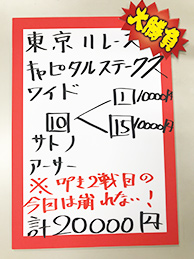 大勝負
東京11レース
キャピタルステークス
ワイド
10 1 10000円
15 10000円
サトノ
アーサー
※叩き2戦目の
今日は崩れない!
計20000円